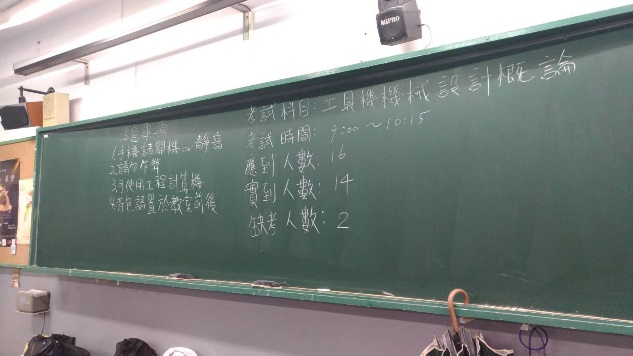 注意事項
1.手機請關機or靜音
2.請勿作弊
3.可使用工程計算機
4.背包請置於教室前後
考試科目:工具機機械設計概論
考試時間: 9:00~10:15
應到人數: 16
實到人數: 14
缺考人數: 2
MIPRO